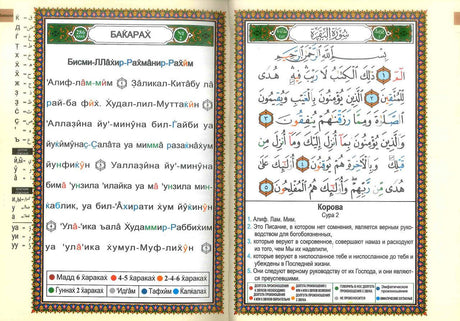 БАКАРАХ
Бисми-ЛЛāхир-Рахмāнир-Рахӣм
'Алиф-лāм-мӣм Зāликал-Китāбу лā
рай-ба фӣх. Худал-лил-Муттакӣн
'Аллазӣна йу'-минӯна бил-Гайби уа
йукӣмӯнаҫ-Салāта уа миммā разакнāхум
йунфикӯн Уаллазӣна йу'-минӯна
бимā 'унзила 'илайка уа мā 'унзила мин-
каблик, уа бил-'Āхирати хум йӯкинӯн
'Улā-'ика 'алā Худаммир-Раббихим
уа 'улā-'ика хумул-Муф-лихӯн
Мадд 6 хараках
4-5 хараках
2-4-6 хараках
Гуннах 2 хараках
Идгāм
Тафхӣм
Калкалах
سُورَةُ الْبَقَرَةِ
بِسْمِ اللَّهِ الرَّحْمَٰنِ الرَّحِيمِ
الٓمٓ ١ ذَٰلِكَ الْكِتَابُ لَا رَيْبَ فِيهِ هُدًى
لِّلْمُتَّقِينَ ٢ الَّذِينَ يُؤْمِنُونَ بِالْغَيْبِ وَيُقِيمُونَ
الصَّلَاةَ وَمِمَّا رَزَقْنَاهُمْ يُنفِقُونَ ٣
وَالَّذِينَ يُؤْمِنُونَ بِمَا أُنزِلَ إِلَيْكَ وَمَا أُنزِلَ مِن
قَبْلِكَ وَبِالْآخِرَةِ هُمْ يُوقِنُونَ ٤ أُولَٰئِكَ عَلَىٰ
هُدًى مِّن رَّبِّهِمْ وَأُولَٰئِكَ هُمُ الْمُفْلِحُونَ ٥
Корова
Сура 2
1. Алиф. Лам. Мим.
2. Это Писание, в котором нет сомнения, является верным руко-
водством для богобоязненных,
3. которые веруют в сокровенное, совершают намаз и расходуют
из того, чем Мы их наделили,
4. которые веруют в ниспосланное тебе и ниспосланное до тебя и
убеждены в Последней жизни.
5. Они следуют верному руководству от их Господа, и они являют-
ся преуспевшими.